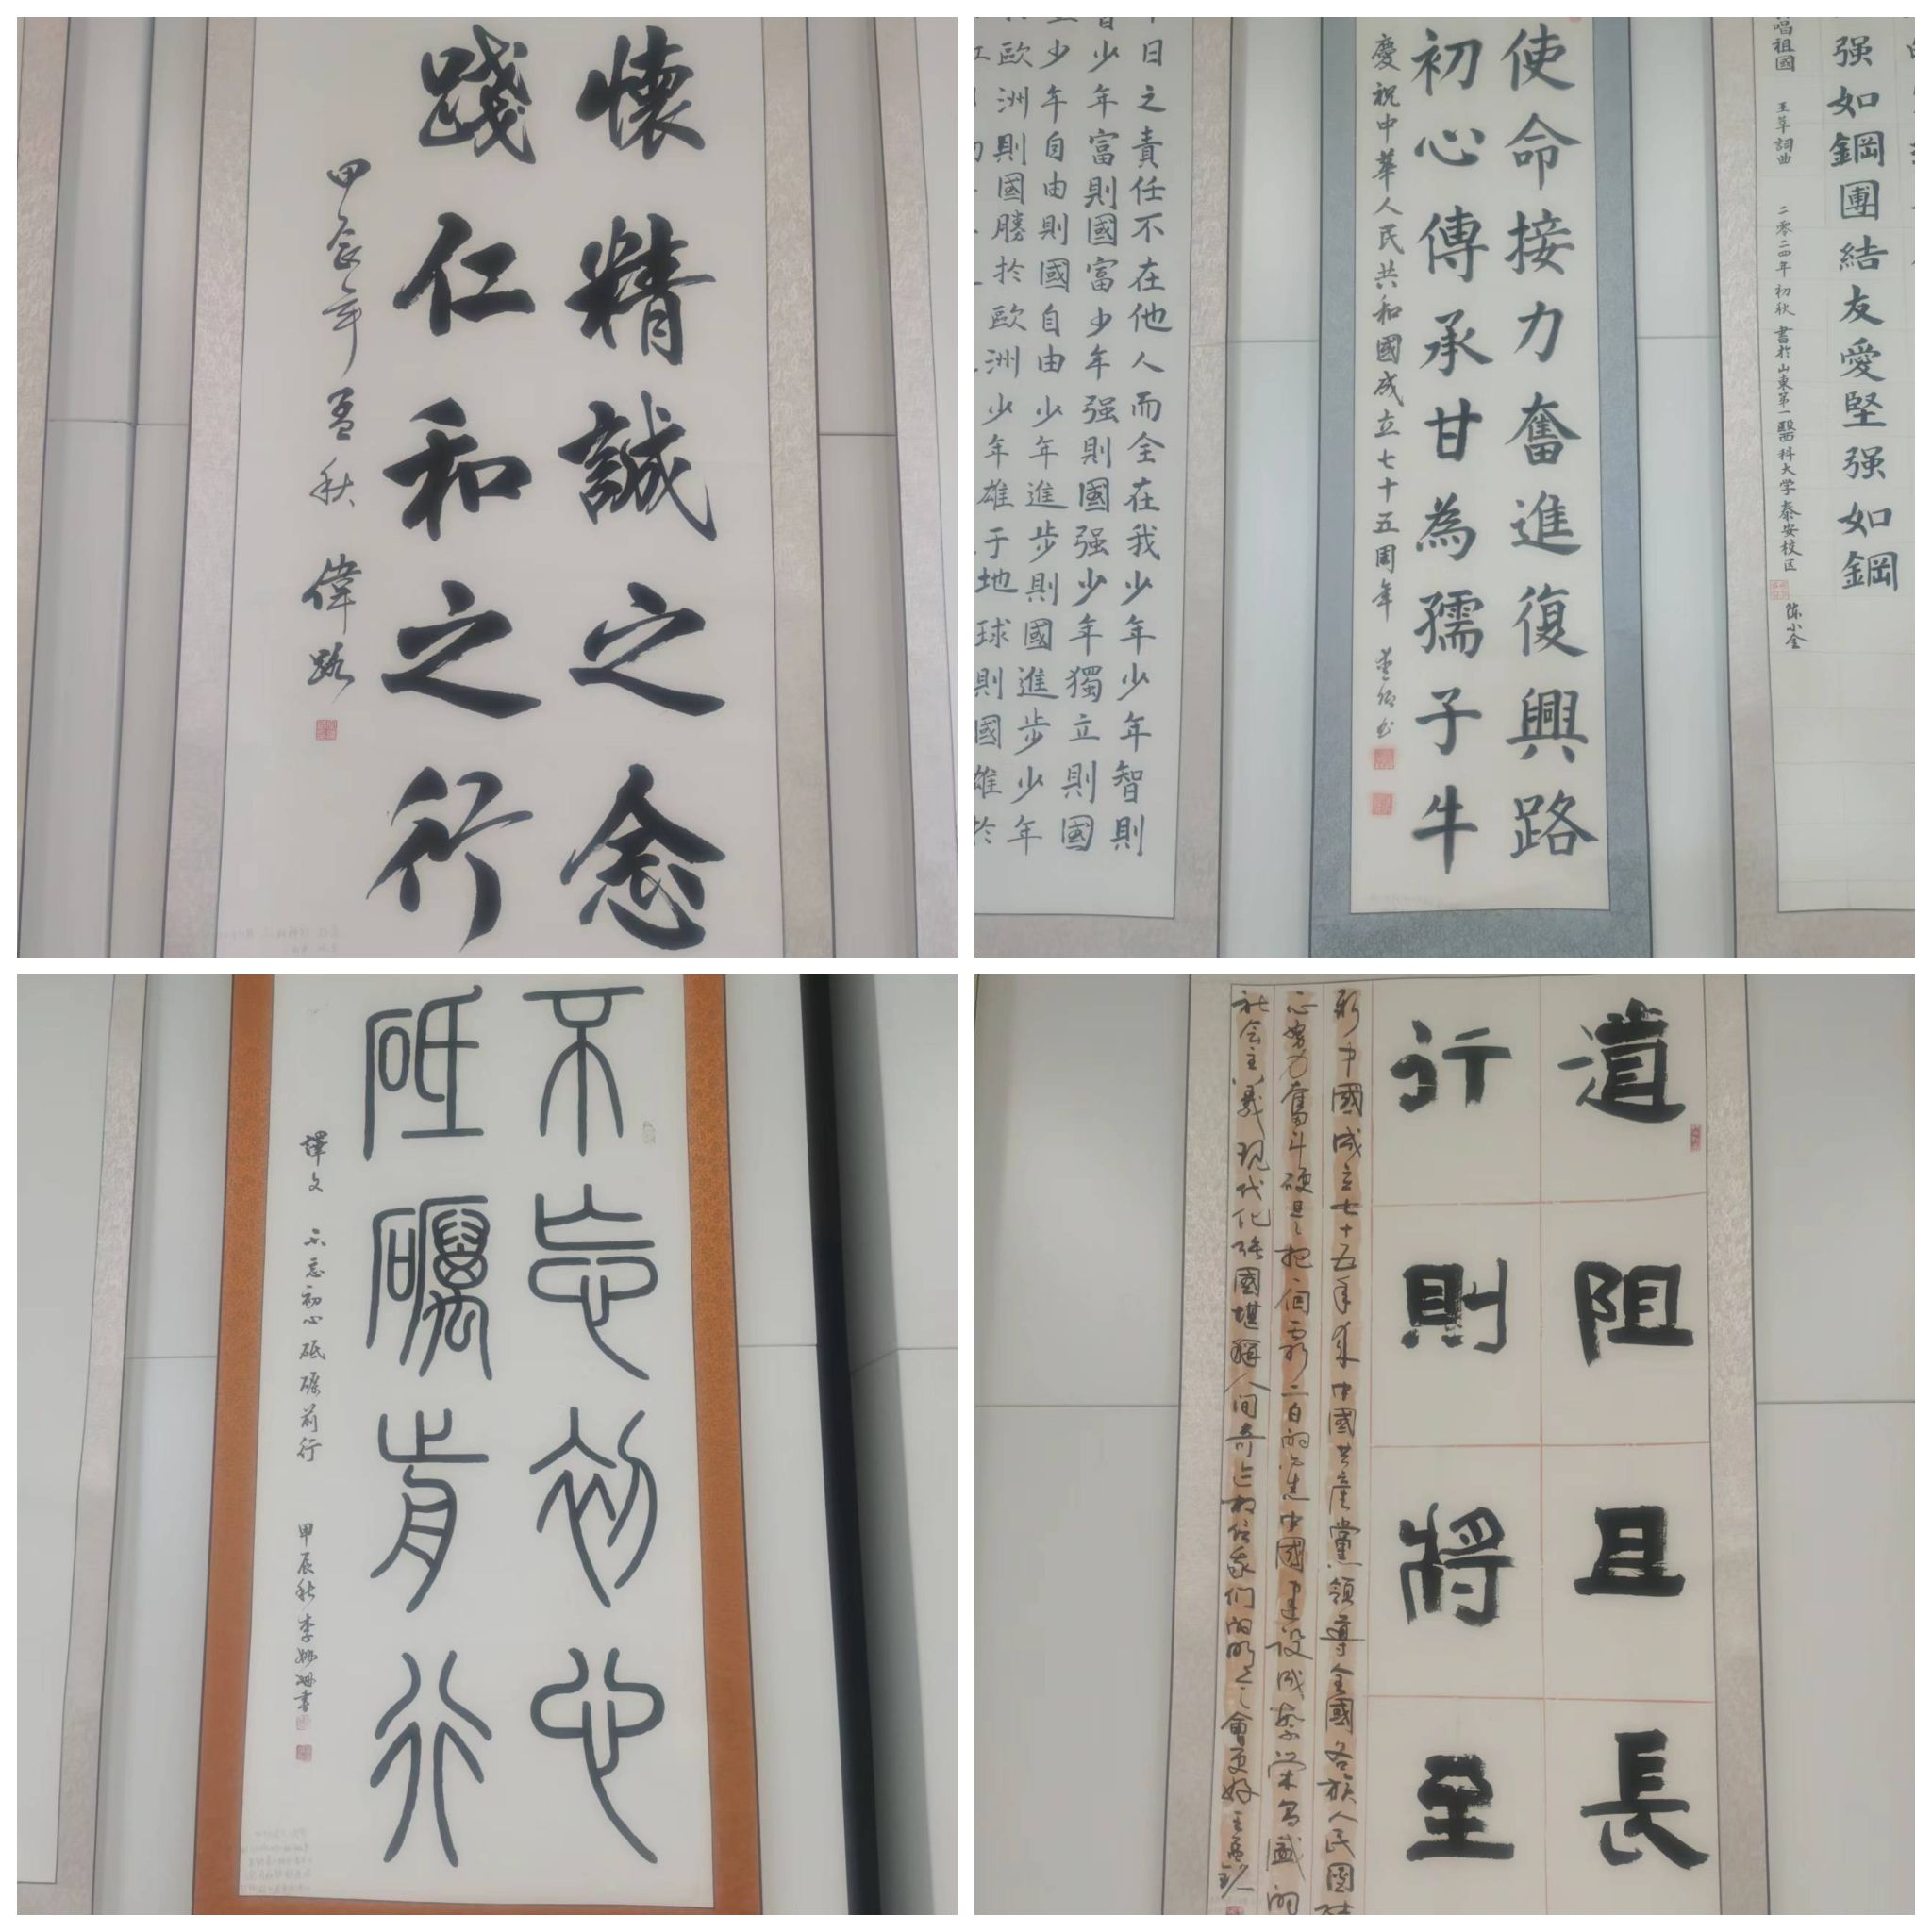 懷精誠之念
踐仁和之行
甲辰年孟秋 偉路
日之責任不在他人而全在我少年少年智則
少年富則國富少年强則國强少年獨立則國
少年自由則國自由少年進步則國進步少年
歐洲則國勝於歐洲少年雄于地球則國雄於
使命接力奮進復興路
初心傳承甘為孺子牛
慶祝中華人民共和國成立七十五周年
强如鋼團結友愛堅强如鋼
唱祖國 王莘詞曲 二零二四年初秋 書於山東第一醫科大学泰安校区 陈小全
不忘初心
砥礪前行
譯文 不忘初心砥礪前行 甲辰秋李妙珊書
道阻且長
行則將至
新中國成立七十五年来中國共産黨領導全國各族人民團結
心努力奮斗硬是把一個一窮二白的舊中國建設成繁荣昌盛的
社会主義现代化强國堪稱人间奇迹相信我们的明天会會更好